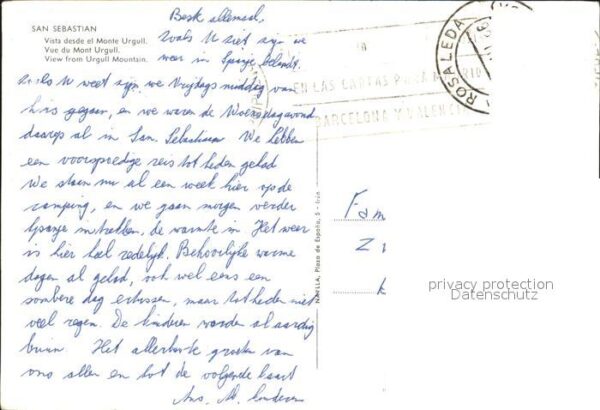 SAN SEBASTIAN
Vista desde el Monte Urgull.
Vue du Mont Urgull.
View from Urgull Mountain.
Best allemaal,
zoals U ziet zijn we
weer in Spanje beland.
Zoals U weet zijn we Vrijdags middag van
huis gegaan, en we waren de Woensdagavond
daarop al in San Sebastian We hebben
een voorspoedige reis tot heden gehad
We staan nu al een week hier op de
camping, en we gaan morgen verder
Spanje intrekken, de warmte in. Het weer
is hier heel redelijk. Behoorlijke warme
dagen al gehad, ook wel eens een
sombere dag ertussen, maar tot heden niet
veel regen. De kinderen worden al aardig
bruin. Het allerbeste groeten van
ons allen en tot de volgende kaart
M. kinderen
EN LAS CARTAS PARA MADRID
BARCELONA Y VALENCIA
ROSALEDA
Plaza de España, 5 - Irun
Fam
Zi
k
privacy protection
Datenschutz